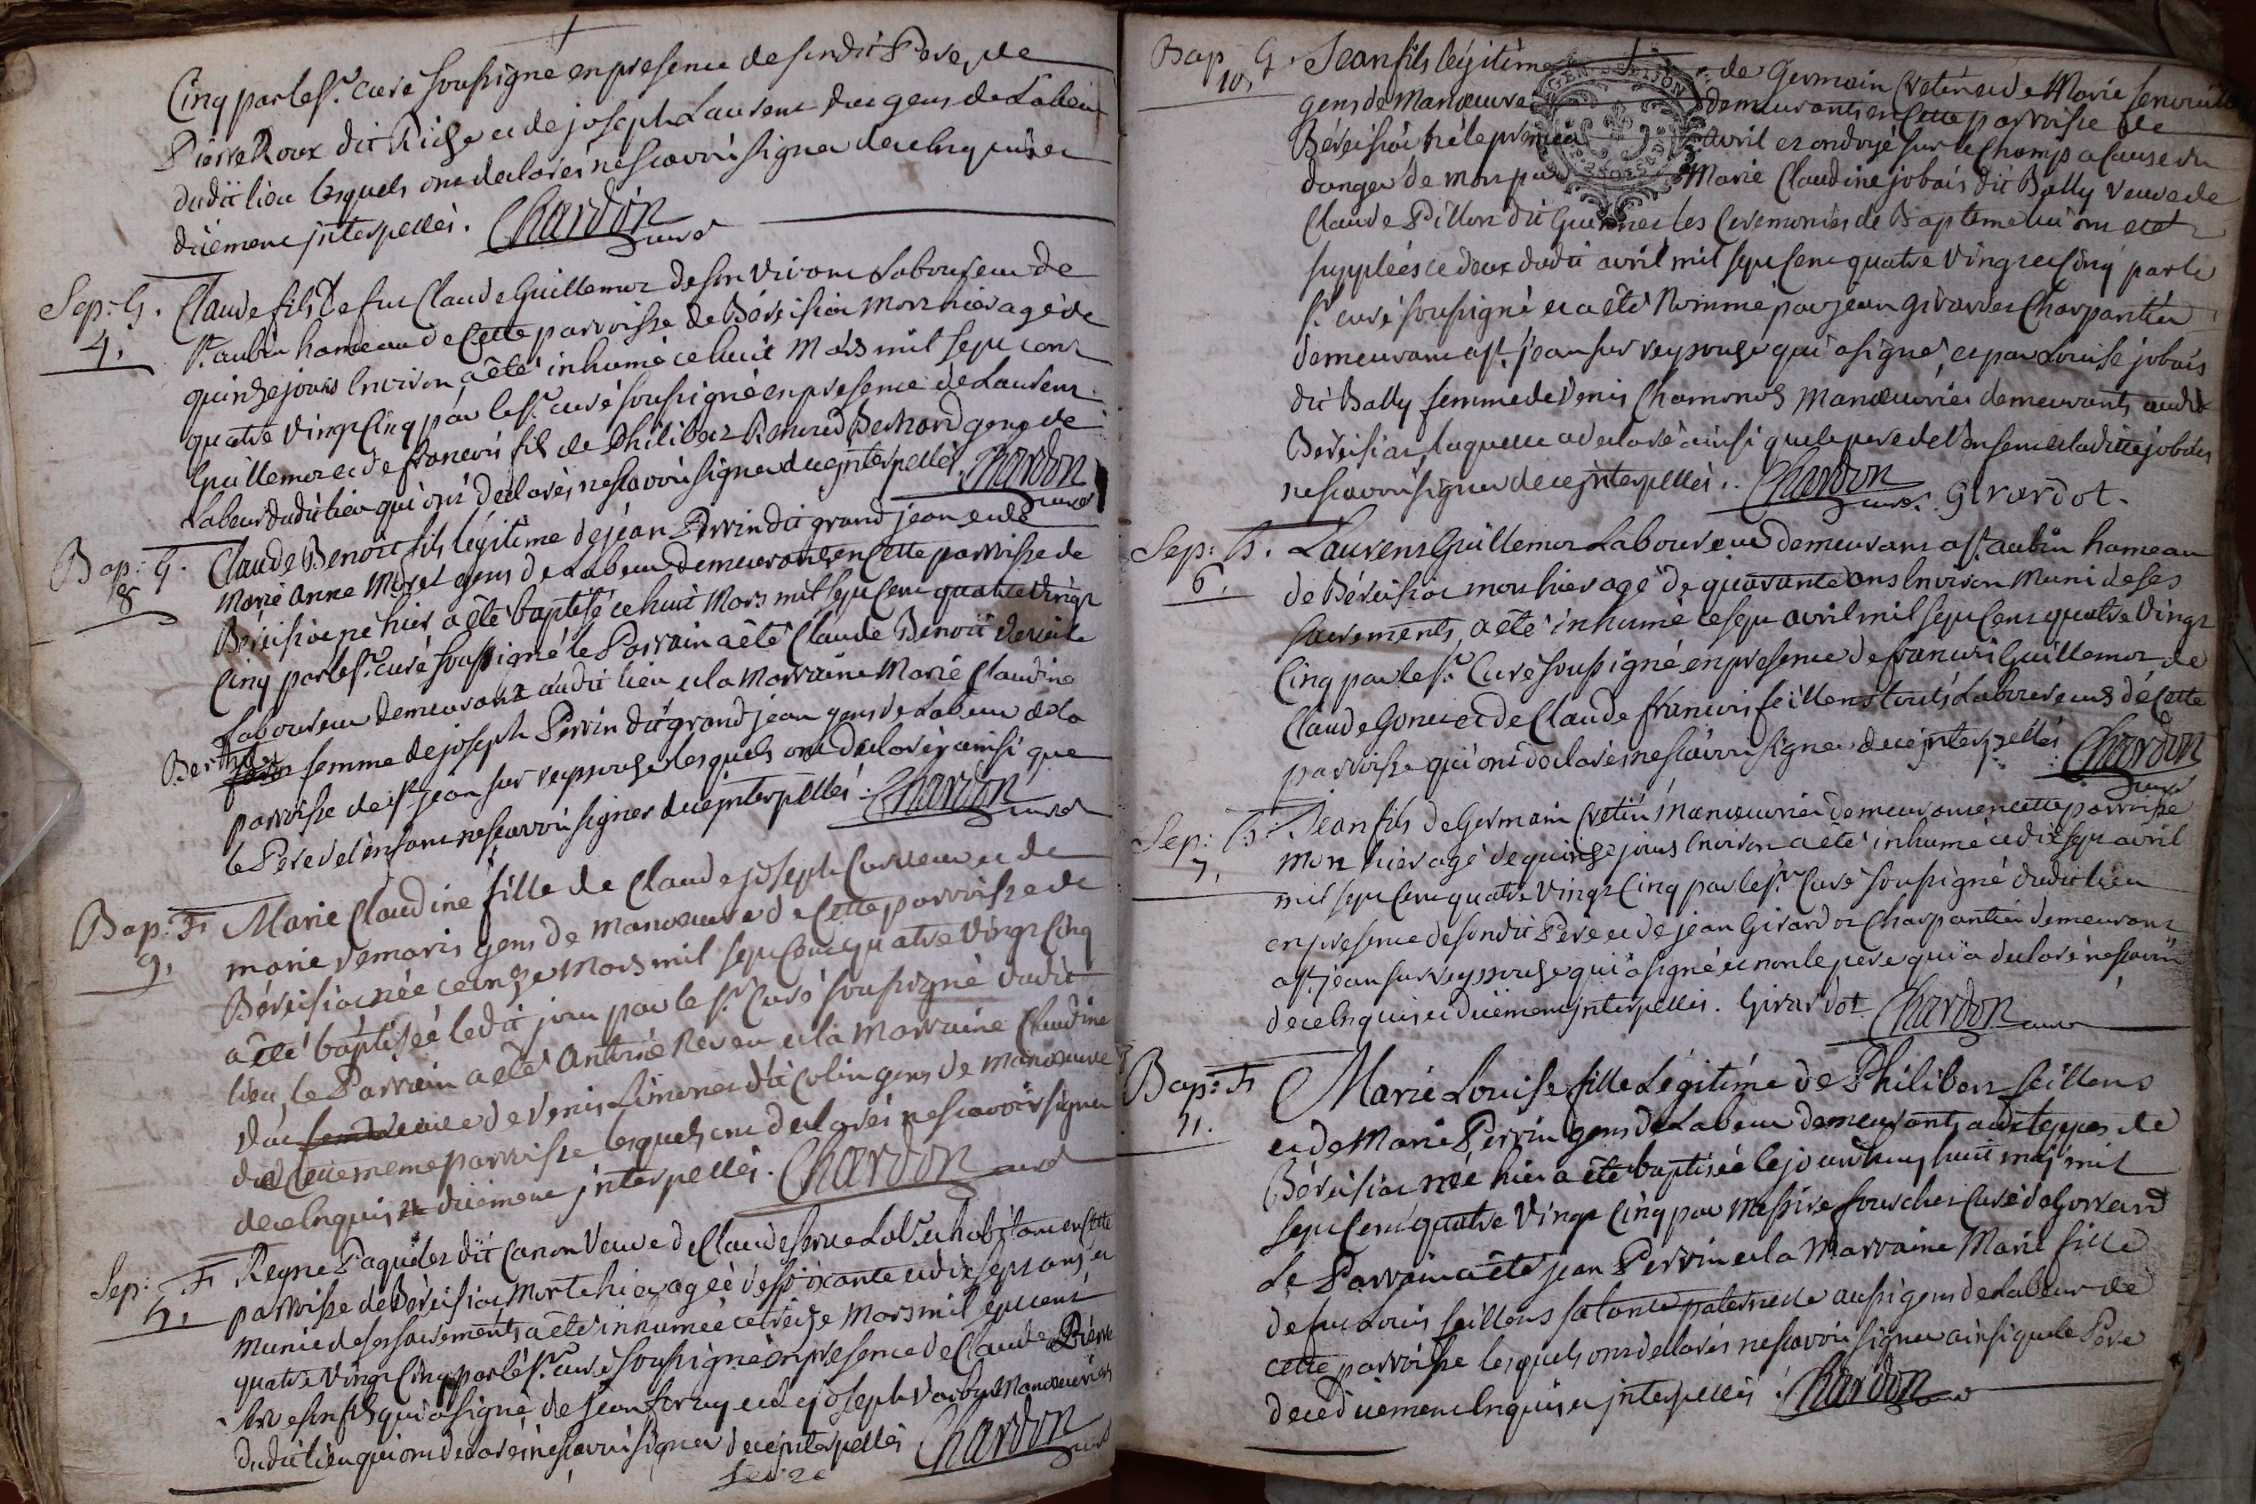 Cinq par le Sr. curé soussigné en presence de sondit Pere, de
Pierre Roux dit Riche et de joseph Laurent dit gens de Labeur
dudit lieu lesquels ont declarés ne scavoir signer de ce enquis et
düement jnterpellés. Chardon curé
Sep: G. Claude fils de fut Claude Guillemot de son vivant Laboureur de
4. St. aubin hameau de Cette parroisse de Béreisiat mort hier agé de
quinze jours Environ, a été inhumé ce huit Mars mil sept cent
quatre vingt Cinq par le Sr. curé soussigné en presence de Laurent
Guillemot et de francois fils de Philibert Bernard gens de
Labeur dudit lieu qui ont declarés ne scavoir signer de ce jnterpellés. Chardon curé
Bap: G. Claude Benoit fils légitime de jean Perrin dit grand jean et de
8 Marie Anne Morel gens de Labeur demeurants en Cette parroisse de
Béreisiat né hier a été baptisé ce huit Mars mil sept Cent quatre Vingt
Cinq par le Sr. curé soussigné le Parrain a été Claude Benoit
Laboureur demeurant audit lieu et la Marraine Marie Claudine
Berthet femme de joseph Perrin dit grand jean gens de Labeur de la
parroisse de St. jean sur reyssouze lesquels ont declarés ainsi que
le Pere de l'enfant ne scavoir signer de ce jnterpellés. Chardon curé
Bap: F. Marie Claudine fille de Claude joseph Carreau et de
9. marie Demaris gens de Manoeuvre de Cette parroisse de
Béreisiat née ce onze Mars mil sept Cent quatre Vingt Cinq
a été baptisée ledit jour par le Sr. Curé soussigné dudit
lieu, le Parrain a été Antoine Reveu et la Marraine Claudine
veuve de Denis Limonet dit Colin gens de Manoeuvre
de Cette meme parroisse lesquels ont declarés ne scavoir signer
de ce enquis et düement jnterpellés. Chardon curé
Sep: F. Reyne Paquelet dit Canon Veuve de Claude Serve habitant en Cette
5. parroisse de Béreisiat Morte hier agée de soixante et dix sept ans et
Munie de ses sacrements a été inhumée ce treize Mars mil sept cent
quatre Vingt Cinq par le Sr. curé soussigné en presence de Claude Pierre
Serve son fils qui a signé de jean et de joseph Manoeuvriers
dudit lieu qui ont declarés ne scavoir signer de ce jnterpellés Chardon curé
Serve
Bap G. Jean fils légitime de Germain Cretin et de Marie
10, gens de Manoeuvre demeurants en Cette parroisse de
Béreisiat né le premier avril et ondoyé sur le Champ a Cause du
danger de mort par Marie Claudine jobais dit Bally veuve de
Claude Pillon dit Guionet les Ceremonies de Bapteme lui ont eté
supplées ce deux dudit avril mil sept Cent quatre Vingt et Cinq par le
Sr. curé soussigné et a été Nommé par jean Girardot Charpantier
demeurant a St. jean sur reyssouze qui a signé, et par Louise jobais
dit Bally femme de Denis Chamonod Manoeuvrier demeurants audit
Béreisiat laquelle a declaré ainsi que le pere de l'enfant et ladite jobais
ne scavoir signer de ce jnterpellés. Chardon curé. Girardot.
Sep: G. Laurent Guillemot Laboureur demeurant a St. aubin hameau
6. de Béreisiat mort hier agé de quarante ans Environ Muni de ses
sacrements, a été inhumé ce sept avril mil sept Cent quatre Vingt
Cinq par le Sr. Curé soussigné en presence de francois Guillemot de
Claude Gonet et de Claude francois feillens touts Laboureurs de Cette
parroisse qui ont declarés ne scavoir signer de ce jnterpellés Chardon curé
Sep: G. Jean fils de Germain Cretin Manoeuvrier demeurant en cette parroisse
7. Mort hier agé de quinze jours Environ a été inhumé ce dix sept avril
mil sept Cent quatre Vingt Cinq par le Sr. Curé soussigné dudit lieu
en presence de sondit Pere et de jean Girardot Charpantier demeurant
a St. jean sur reyssouze qui a signé et non le pere qui a declaré ne scavoir
de ce enquis et düement jnterpellés. Girardot Chardon curé
Bap: F. Marie Louise fille Légitime de Philibert feillens
11. et de Marie Perrin gens de Labeur demeurants aux teppes de
Béreisiat née hier a été baptisée le jourdhuy huit mai mil
sept Cent quatre Vingt Cinq par Messire fourchet Curé de Gorrevod
Le Parrain a été jean Perrin et la Marraine Marie fille
de fut Louis feillens sa tante paternelle aussi gens de Labeur de
cette parroisse lesquels ont declarés ne scavoir signer ainsi que le Pere
de ce düement Enquis et jnterpellés. Chardon curé